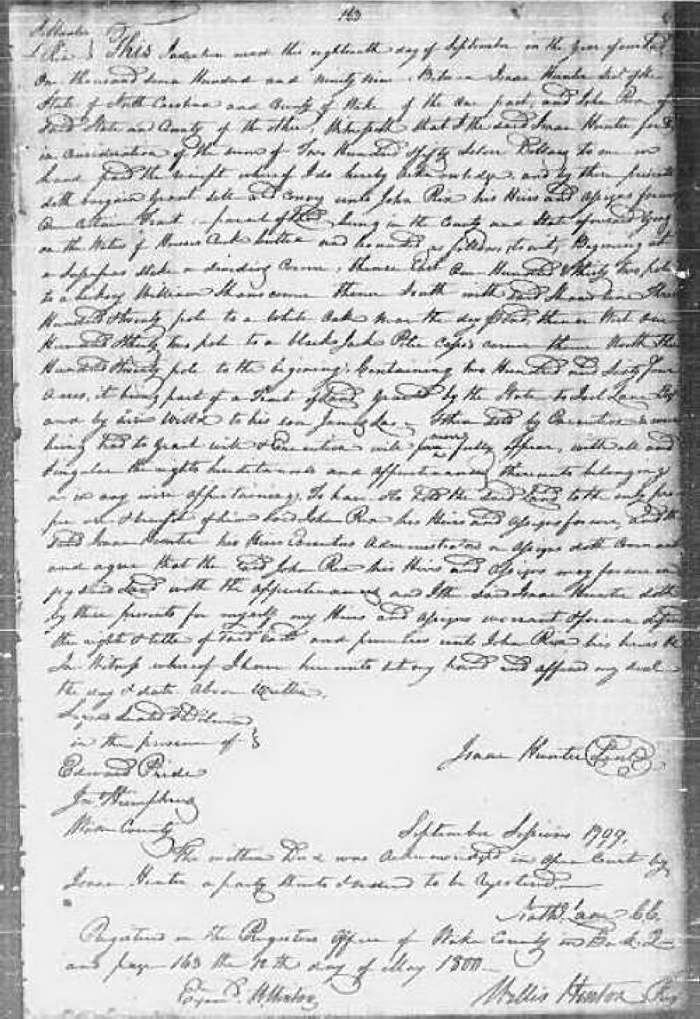 163
I Hunter
J Rex } This Indenture made the eighteenth day of September in the Year of our Lord
One thousand seven Hundred and ninety nine Between Isaac Hunter Senr of the
State of North Carolina and County of Wake of the one part, and John Rex of
said State and County of the other, Witnesseth that I the said Isaac Hunter for &
in consideration of the sum of Two Hundred & fifty Silver Dollars to me in
hand paid the receipt whereof I do hereby acknowledge and by these presents
doth bargain grant sell and convey unto John Rex his Heirs and Assigns forever
One certain Tract or parcel of Land lying in the County and State aforesaid lying
on the Waters of Creek butted and bounded as follows to wit, Beginning at
a stake a dividing Corner, thence East One Hundred & thirty two poles
to a hickory William corner thence South with said line Three
Hundred & twenty pole to a White Oak near the thence West one
Hundred & thirty two pole to a black Jack Peter corner thence North Three
Hundred & twenty pole to the begining; Containing two Hundred and Sixty four
Acres, it being part of a Tract of Land granted by the State to Joel Lane
and by him to his son James & then sold by Execution
being had to Grant & Execution will more fully appear, with all and
singular the rights hereditaments and appurtenances thereunto belonging
or in any wise appertaining, To have & to hold the said Land to the only
use & benefit of him said John Rex his Heirs and Assigns forever, and the
said Isaac Hunter his Heirs Executors Administrators or Assigns doth Covenant
and agree that the said John Rex his Heirs and Assigns may forever
said Land with the appurtenances and I the said Isaac Hunter doth
by these presents for myself my Heirs and Assigns warrant & forever defend
the right & title of said Land and premises unto John Rex his heirs &c
In Witness whereof I have hereunto set my hand and affixed my seal
the day & date above Written.
Signed Sealed & Delivered
in the presence of }
Isaac Hunter Seal
Edward Pride
Jno Humphries
Wake County
September Sessions 1799.
The within Deed was Acknowledged in Open Court by
Isaac Hunter a party thereto & ordered to be registered
Nathl Lane CC.
Registered in the Registers Office of Wake County in Book Q
and page 163 the 12th day of May 1800
H. Hinton
Willis Hinton Reg